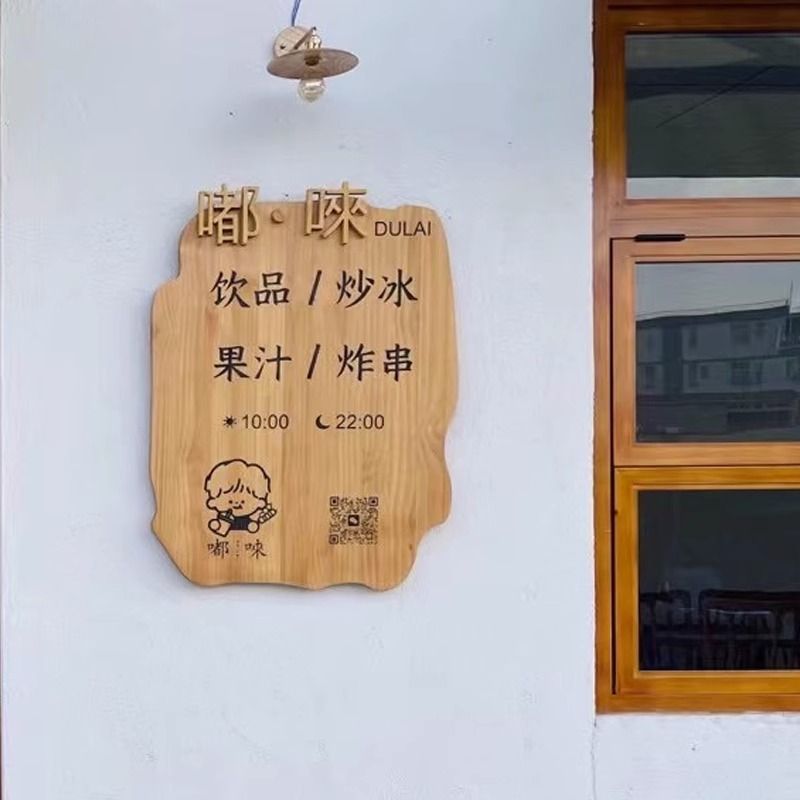 嘟·唻 DULAI
饮品 / 炒冰
果汁 / 炸串
10:00 22:00
嘟⋮唻